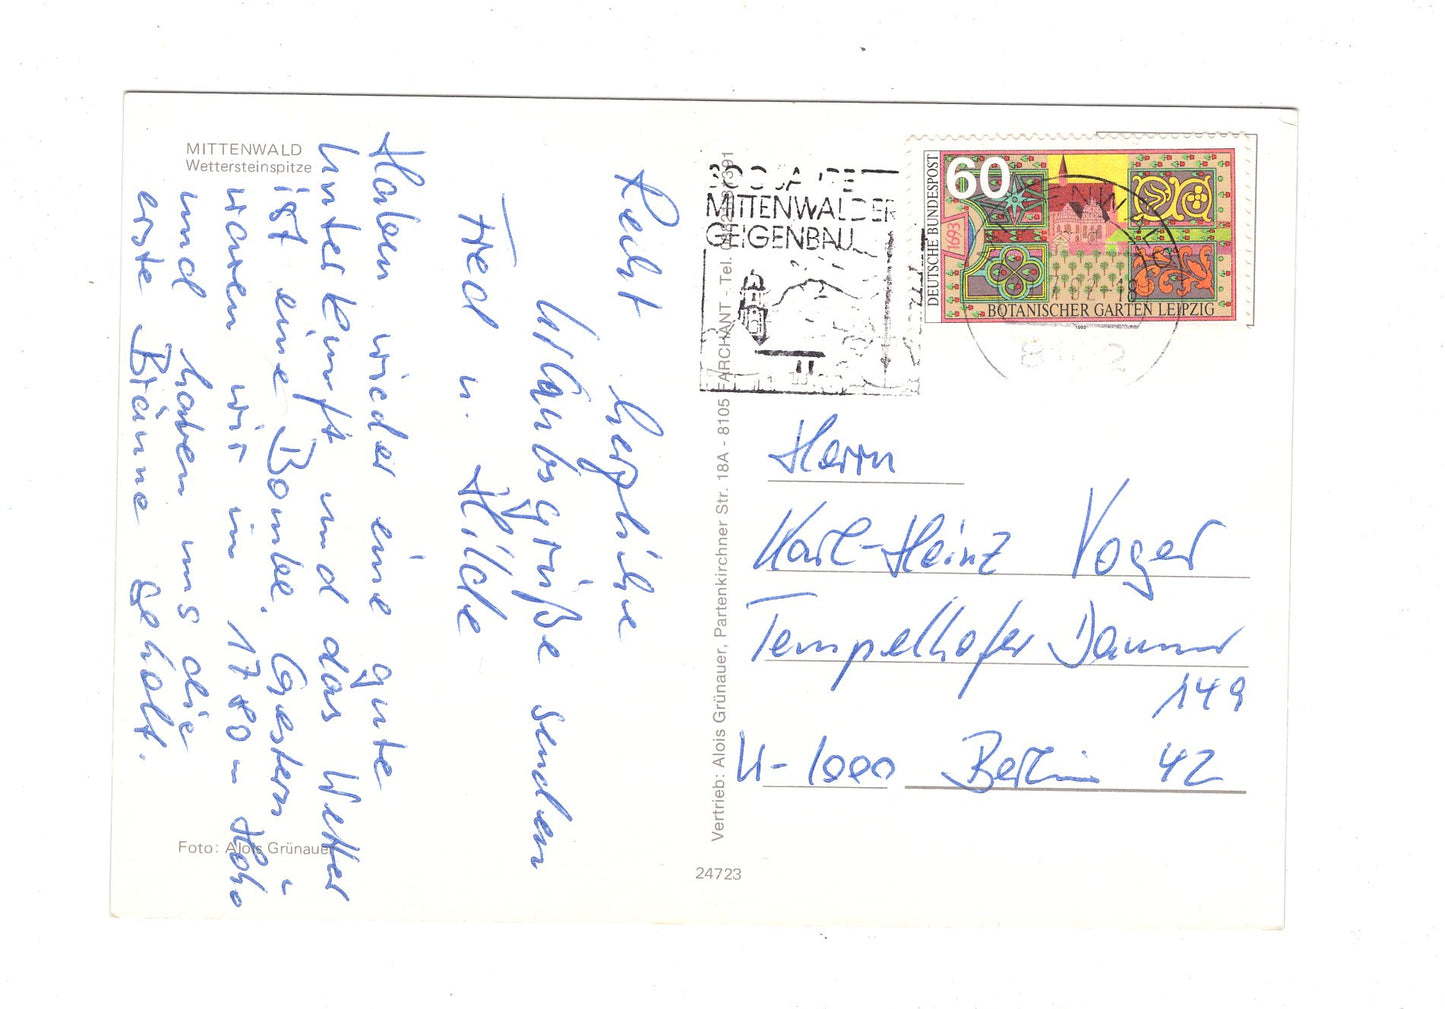 MITTENWALD
Wettersteinspitze
Recht herzliche
Urlaubsgrüße senden
Fred u. Hilde
Haben wieder eine gute
Unterkunft und das Wetter
ist eine Bombe. Gestern
waren wir in 1780 m Höhe
und haben uns die
erste Bräune geholt.
Foto: Alois Grünauer
Vertrieb: Alois Grünauer, Partenkirchner Str. 18A - 8105 FARCHANT - Tel.
24723
300 JAHRE
MITTENWALDER
GEIGENBAU
60
DEUTSCHE BUNDESPOST
1693
BOTANISCHER GARTEN LEIPZIG
1992
18
8102
Herrn
Karl-Heinz Voger
Tempelhofer Damm
149
W-1000 Berlin 42